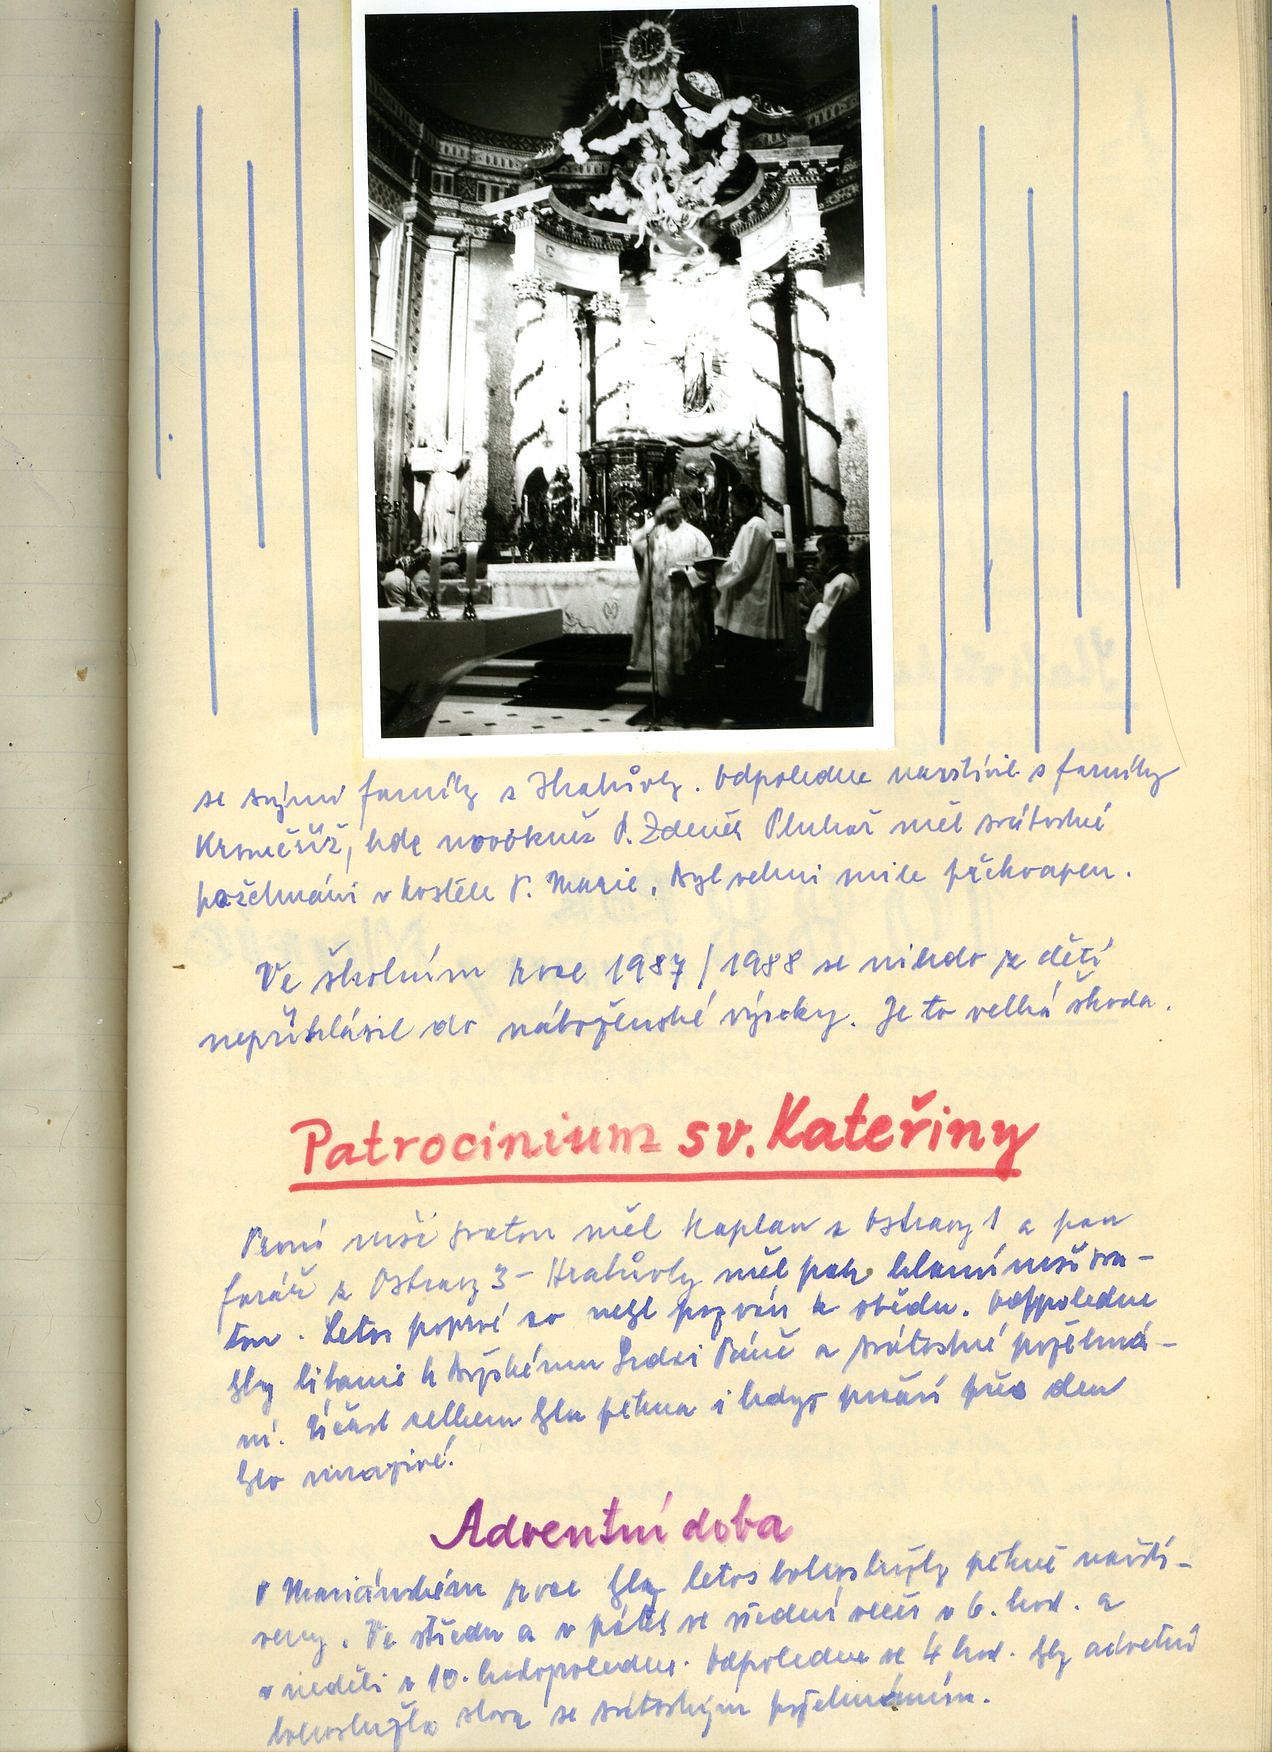 se svými farníky z Hrabůvky. Odpoledne navštívil s farníky
Kroměříž, kde novokněz P. Zdeněk Pluhař měl svátostné
požehnání v kostele P. Marie, byl velmi mile překvapen.
Ve školním roce 1987/1988 se nikdo z dětí
nepřihlásil do náboženské výuky. Je to velká škoda.
Patrocinium sv. Kateřiny
První mši svatou měl kaplan z Ostravy 1 a pan
farář z Ostravy 3 - Hrabůvky měl pak hlavní mši sva-
tou. Letos poprvé so nebyl pozván k obědu. Odppoledne
byly litanie k Nejsv. Srdci Páně a svátostné požehná-
ní. Účast celkem byla pěkná i když počasí přes den
bylo mrazivé.
Adventní doba
V Mariánském roce byly letos bohoslužby pěkně navští-
veny. Ve středu a v pátek ve všední večer v 6. hod. a
v neděli v 10. hod. Odpoledne ve 4 hod. byly adventní
bohoslužby slova se svátostným požehnáním.